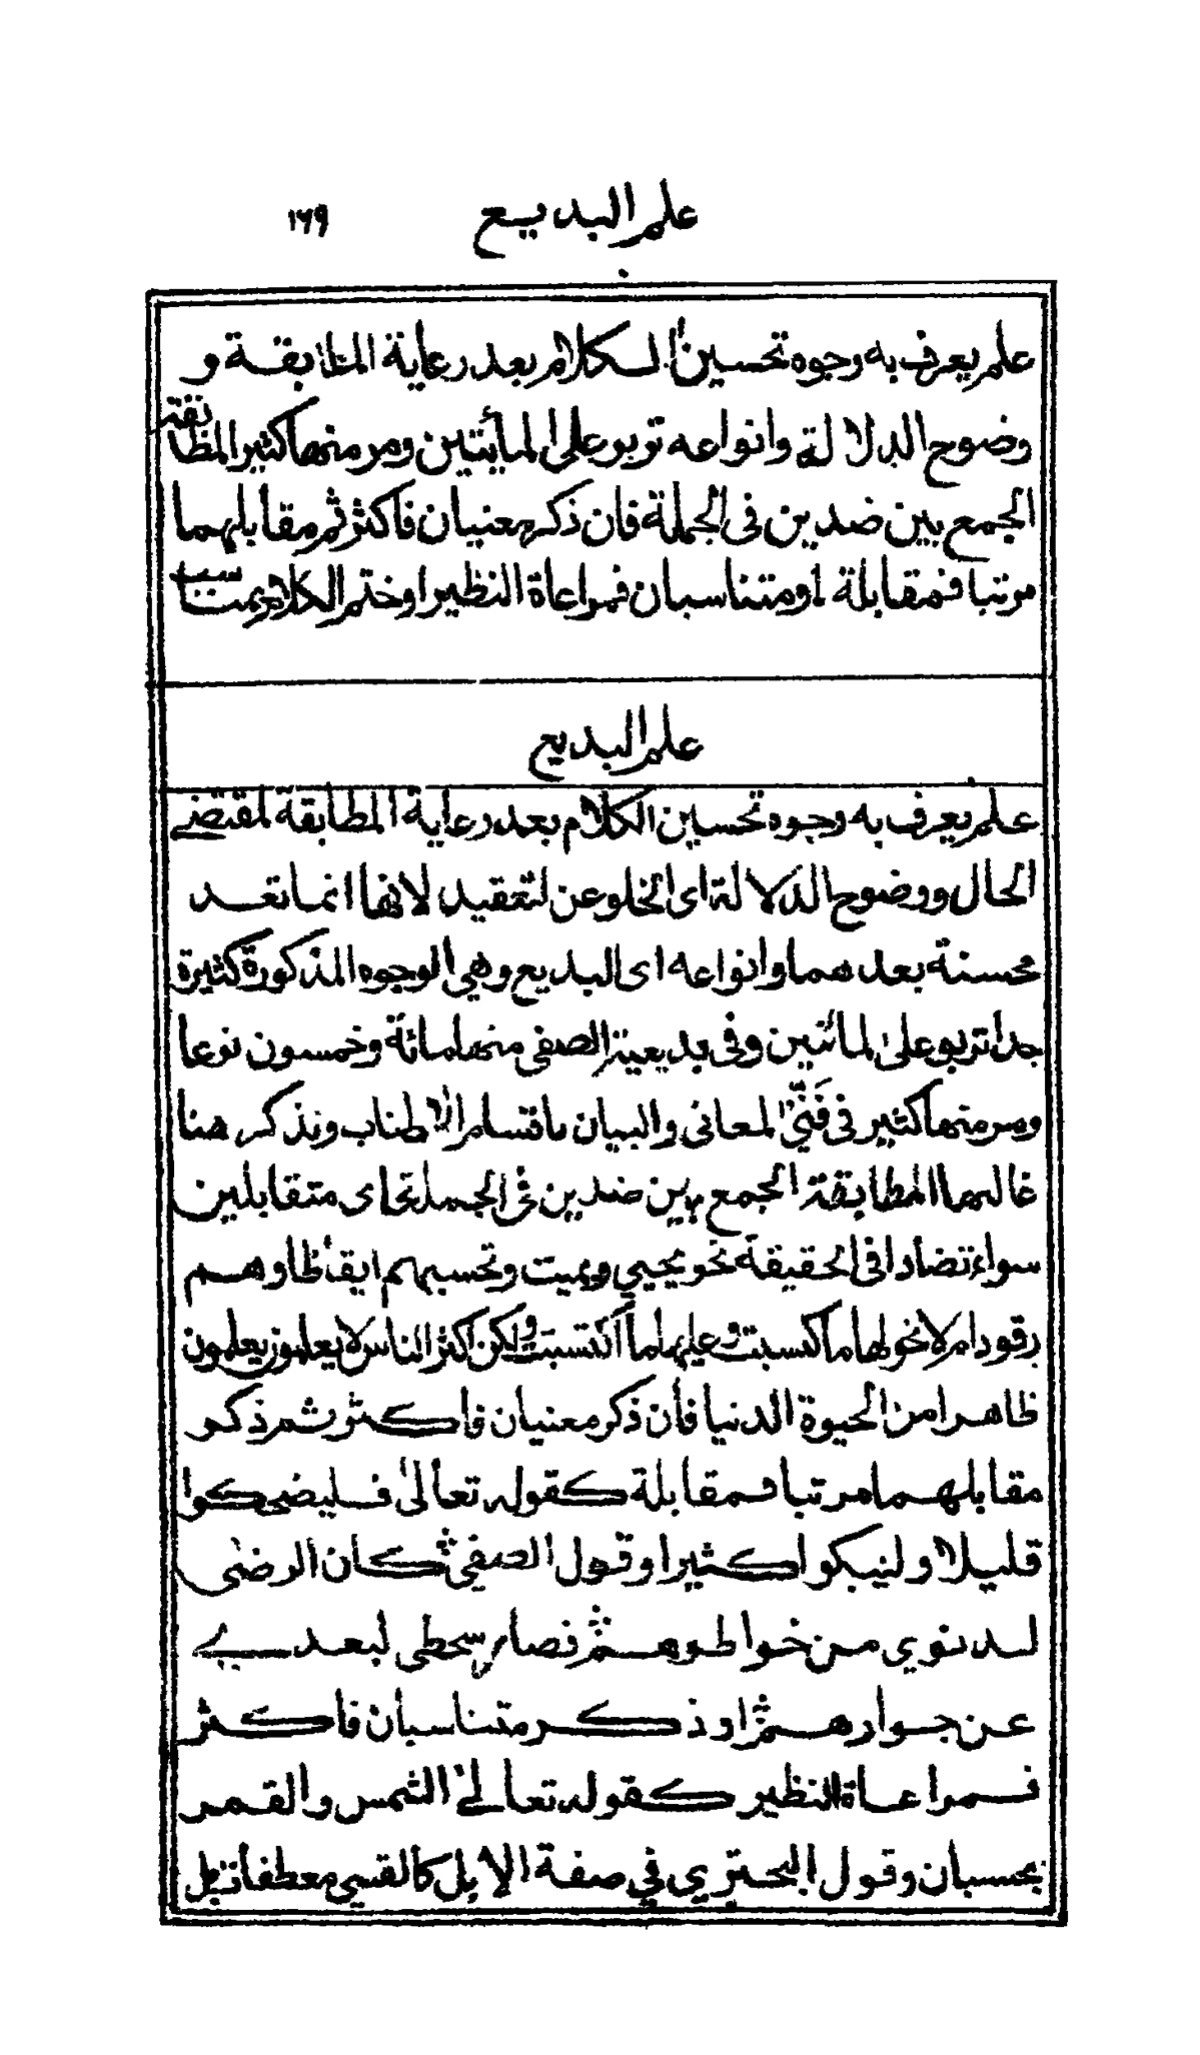 علم البديع ١٦٩
علم يعرف به وجوه تحسين الكلام بعد رعاية المطابقة و
وضوح الدلالة وانواعه تربو على المأيتين ومر منها كثير المطابقة
الجمع بين ضدين فى الجملة فان ذكر معنيان فاكثر ثم مقابلهما
مرتبا فمقابلة او متناسبان فمراعاة النظير او ختم الكلام بمناسب
علم البديع
علم يعرف به وجوه تحسين الكلام بعد رعاية المطابقة لمقتضے
الحال ووضوح الدلالة اى الخلو عن التعقيد لانها انما تعد
محسنة بعدهما وانواعه اى البديع وهي الوجوه المذكورة كثيرة
جدا تربو على المأتين وفى بديعية الصفى منها مائة وخمسون نوعا
ومر منها كثير فى فَنَّىِ المعانى والبيان باقتسام الاطناب ونذكر هنا
غالبها المطابقة الجمع بين ضدين فى الجملة اى متقابلين
سواء تضادا فى الحقيقة نحو يحيي ويميت وتحسبهم ايقاظا وهم
رقود ام لا نحو لها ما كسبت وعليها ما اكتسبت ولكن اكثر الناس لا يعلمون يعلمون
ظاهرا من الحيوة الدنيا فأن ذكر معنيان فاكثر ثم ذكر
مقابلهما مرتبا فمقابلة كقوله تعالىٰ فليضحكوا
قليلا وليبكوا كثيرا وقول الصفى كان الرضى
لدنوي من خواطرهم فصار سخطى لبعدے
عن جوارهم او ذكر متناسبان فاكثر
فمراعاة النظير كقوله تعالىٰ الشمس والقمر
بحسبان وقول البحتري في صفة الإبل كالقسي معطفات بل